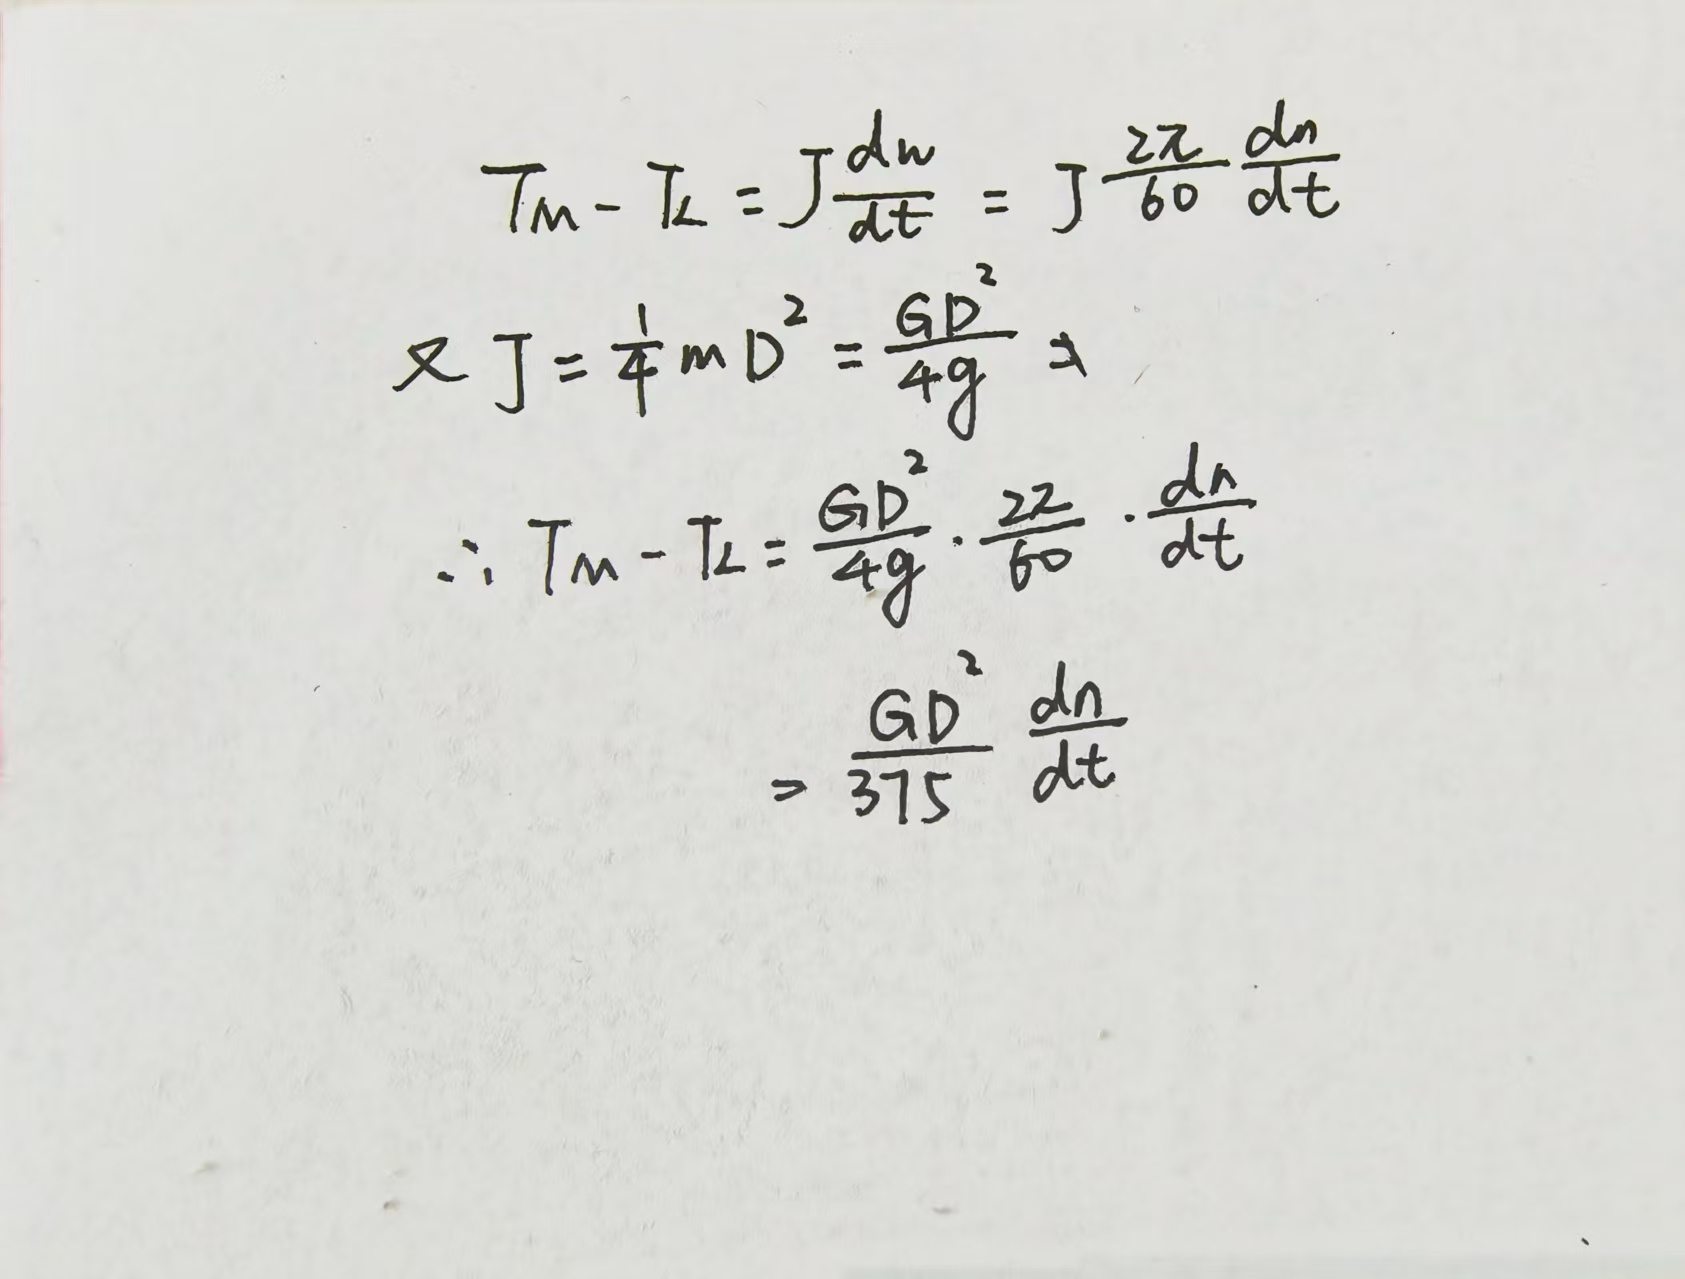 T_M - T_L = J dw/dt = J 2π/60 dn/dt
又 J = 1/4 m D² = GD²/4g
∴ T_M - T_L = GD²/4g · 2π/60 · dn/dt
= GD²/375 dn/dt